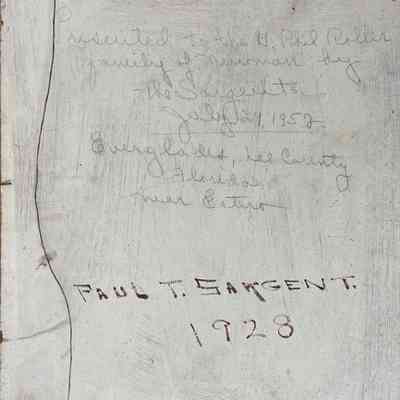 Presented to the H. Phil Roller
family of Newman by
the Sargents
July 24, 1952
Everglades, Lee County
Florida.
near Estero
PAUL T. SARGENT.
1928